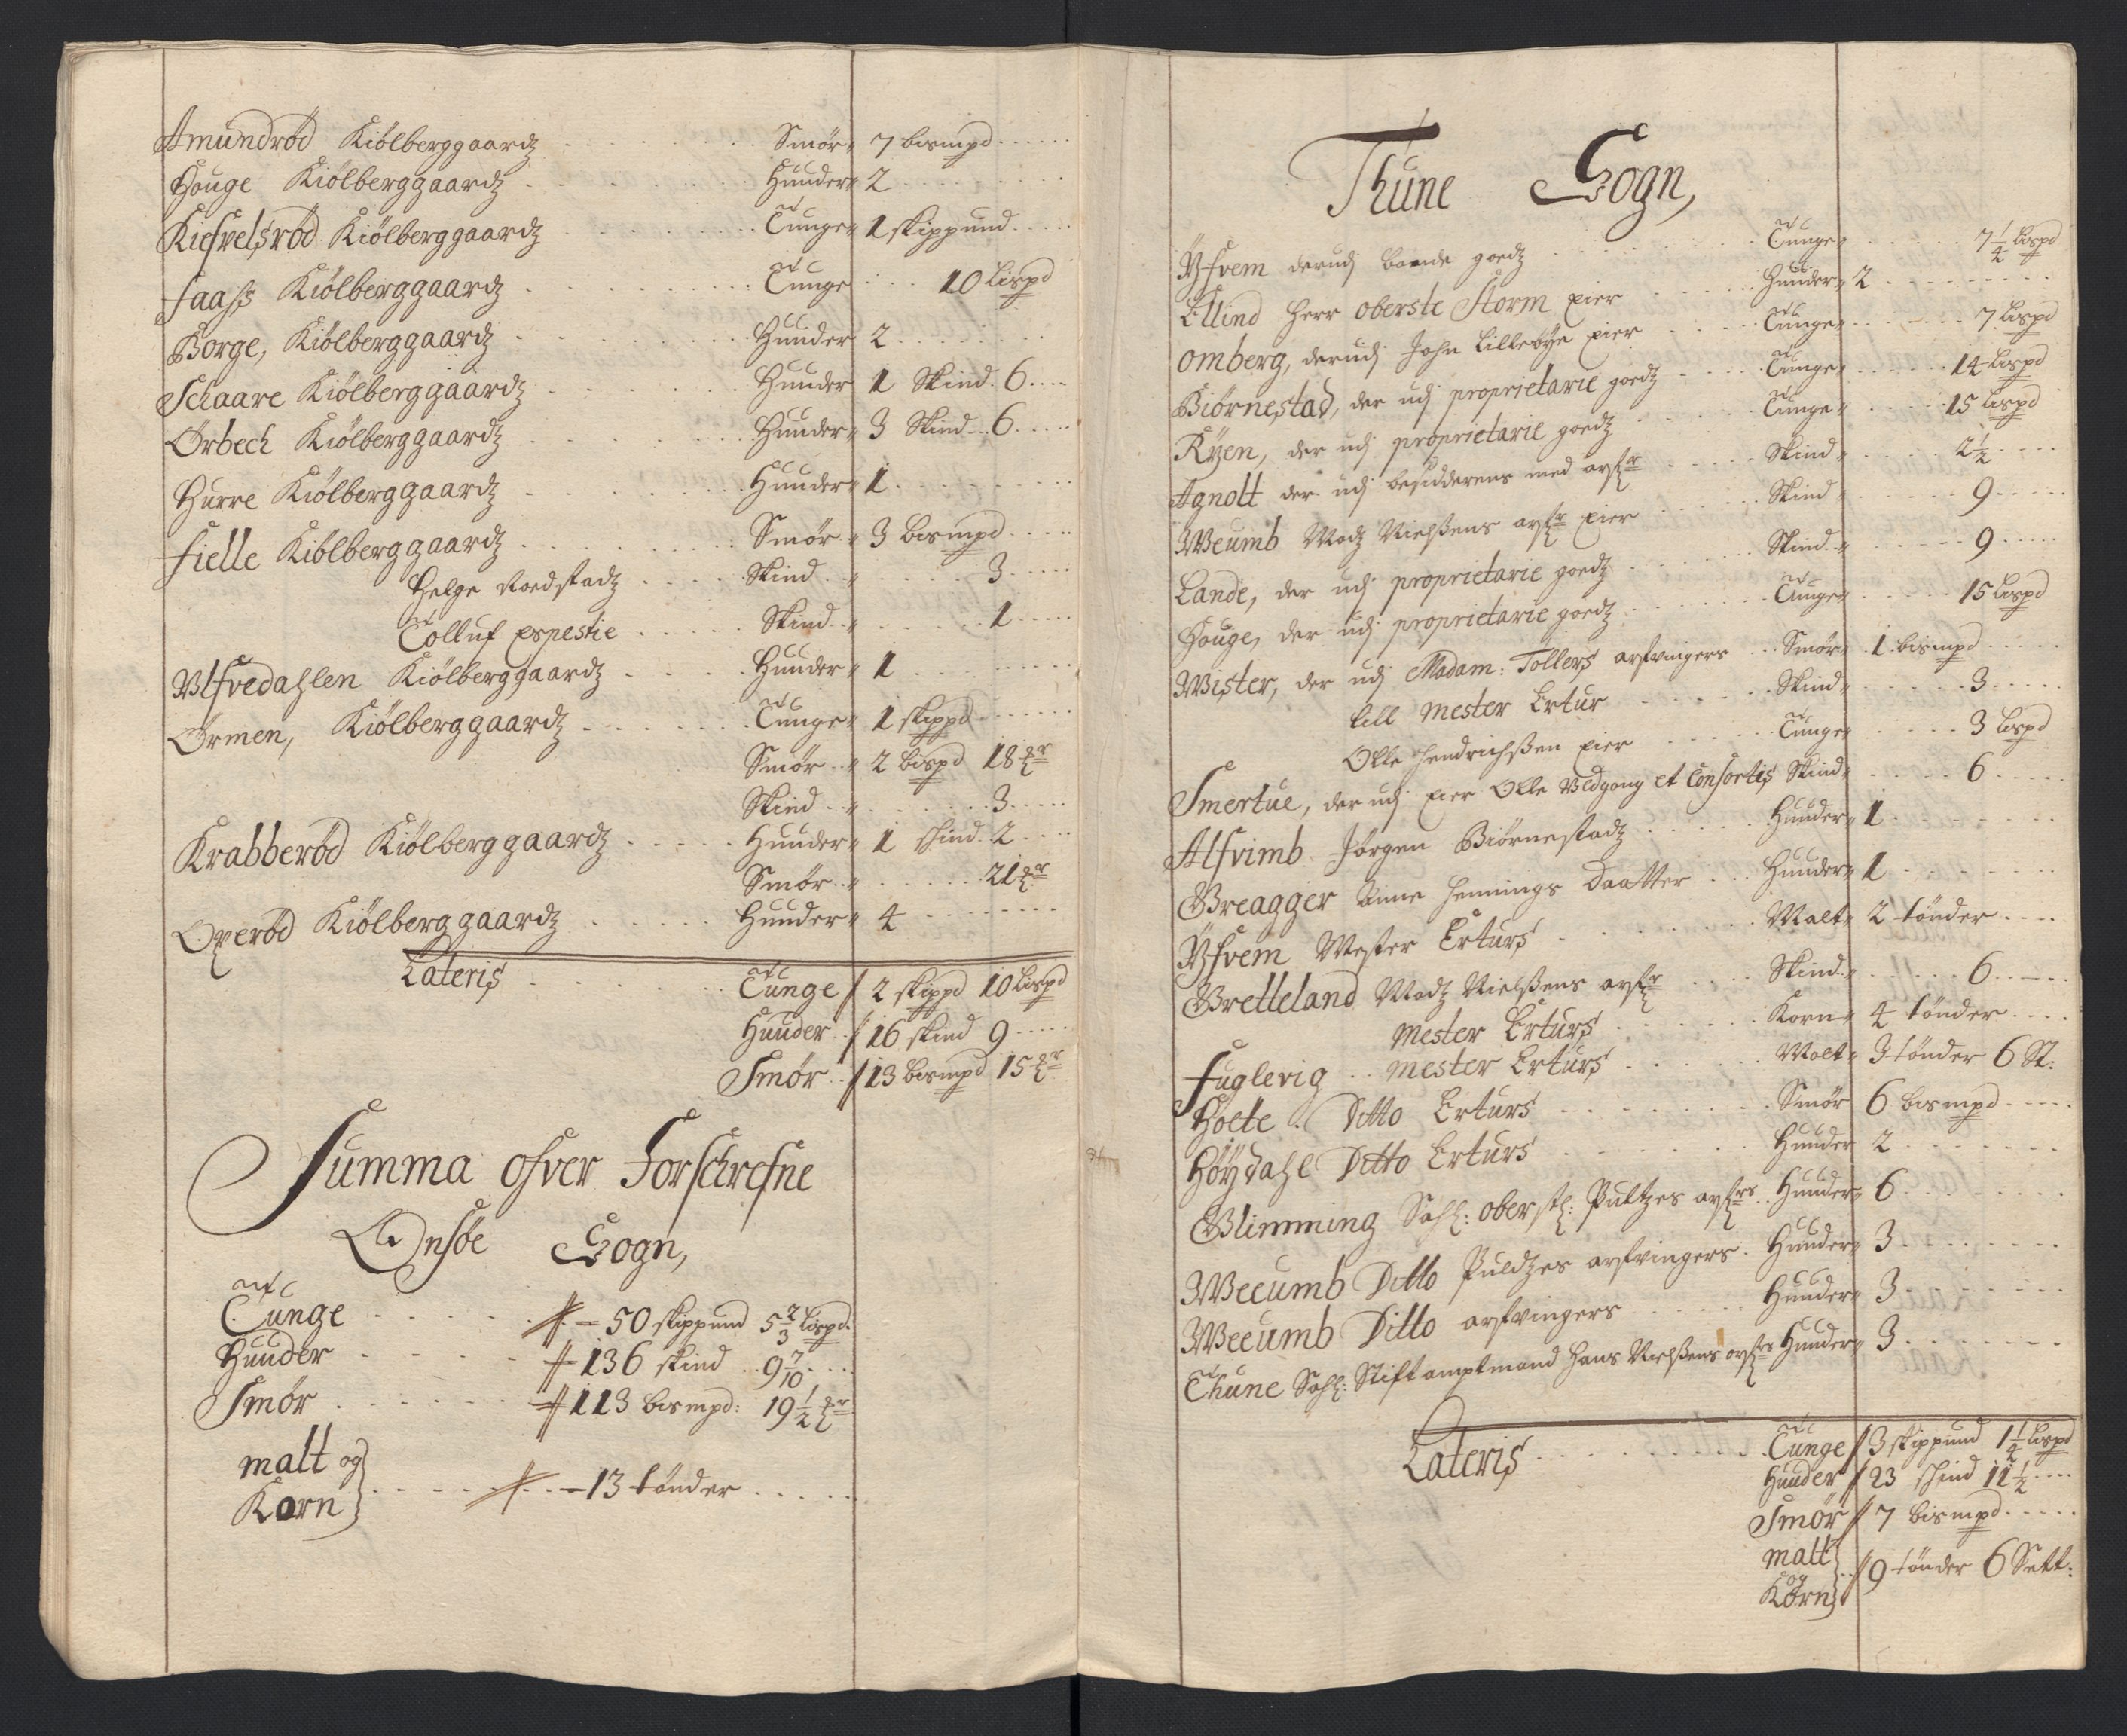 Amundrød Kiølberggaardz Smør 7 bismpd
Houge Kiølberggaardz Huuder 2
Kiesvelsrød Kiølberggaardz Tunge 1 skippund
Faass Kiølberggaardz Tunge 10 Lispd
Borge, Kiølberggaardz Huuder 2
Schaare Kiølberggaardz Huuder 1 Skind 6
Ørbech Kiølberggaardz Huuder 3 Skind 6
Hurre Kiølberggaardz Huuder 1
Fielle Kiølberggaardz Smør 3 bismpd
Helge Roedstadz Skind 3
Tolluf Espestie Skind 1
Ulfvedahlen Kiølberggaardz Huuder 1
Ørmen, Kiølberggaardz Tunge 1 skippd
Smør 2 bispd 18 mr
Skind 3
Krabberød Kiølberggaardz Huuder 1 skind 2
Smør 21 mr
Oxerød Kiølberggaardz Huuder 4
Lateris Tunge 2 skippd 10 Lispd
Huuder 16 skind 9
Smør 13 bismpd 15 mr
Summa ofver Forschrefne
Onsøe Sogn,
Tunge 50 skippund 5 2/3 Lispd:
Huuder 136 skind 9 7/10
Smør 113 bismpd: 19 1/2 mr
malt og
Korn 13 tønder
Thune Sogn,
Yfvem derudj bonde goedz Tunge 7 1/4 Lispd
Ellind Herr oberste Storm Eier Huuder 2
Omberg, derudj John Lillebye Eier Tunge 7 Lispd
Biørnestad, der udj proprietarie goedz Tunge 14 Lispd
Ryen, der udj proprietarie goedz Tunge 15 Lispd
Agnolt der udj besidderens med arfr Skind 2 1/2
Weumb Madz Nielssens arfr Eier Skind 9
Lande, der udj proprietarie goedz Skind 9
Houge, der udj proprietarie goedz Tunge 15 Lispd
Wister, der udj Madam: Tollers arfvingers Smør 1 bismpd
till Mester Erturs Skind 3
Olle Hendrichssen Eier Tunge 3 Lispd
Smertue, der udj Eier Olle Vedgong et Consortis Skind 6
Alfvimb Jørgen Biørnestadz Huuder 1
Greagger Anne Hennings Daatter Huuder 1
Yfvem Mester Erturs Malt 2 tønder
Gretteland Madz Nielssens arfr Skind 6
Mester Erturs Korn 4 tønder
Fuglevig Mester Erturs Malt 3 tønder 6 St:
Holte Ditto Erturs Smør 6 bismpd
Høydahl Ditto Erturs Huuder 2
Glimming Sahl: oberstl: Pultzes arfrs Huuder 6
Weeumb Ditto Puldzes arfvingers Huuder 3
Weeumb Ditto arfvingers Huuder 3
Thune Sahl: Stiftamptmand Hans Nielssens arfrs Huuder 3
Lateris Tunge 3 skippund 1 1/4 Lispd
Huuder 23 skind 11 1/2
Smør 7 bismpd
malt
og
Korn 9 tønder 6 Sett: